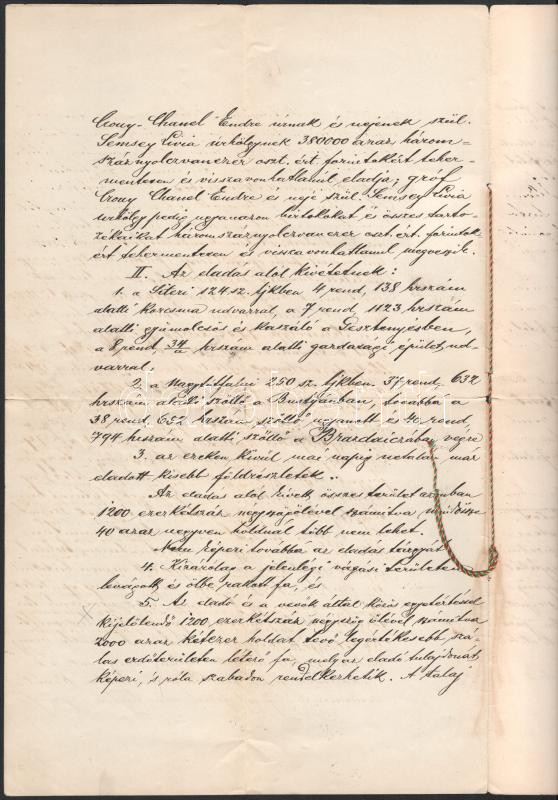 Crouy-Chanel Endre úrnak és nejének szül.
Semsey Livia úrhölgynek 380000 azaz három-
száznyolczvanezer oszt. ért. forintokért teher-
mentesen és visszavonhatlanul eladja; gróf
Crouy Chanel Endre és neje szül. Semsey Livia
úrhölgy pedig ugyanazon birtokokat és összes tarto-
zékaikat háromszáznyolczvanezer oszt. ért. forintok-
ért tehermentesen és visszavonhatlanul megveszik.
II. Az eladás alól kivétetnek:
1. a 124. sz. tjkben 4 rend, 138 hrszám
alatti korcsma udvarral, a 7 rend 1123 hrszám
alatti gyümölcsös és kaszáló a Gesztenyésben,
a 8 rend hrszám alatti gazdasági épület, ud-
varral,
2. a 250 sz. tjkben 37 rend, 632
hrszám alatti szőllő a továbbá a
38 rend, 652 hrszám szőllő ugyanott és 40 rend,
794 hrszám alatti szőllő a végre
3. az ezeken kivül mai napig netalán már
eladott kisebb földrészletek.
Az eladás alól kivett összes terület azonban
1200 ezerkétszáz négyszögölével számítva mindössze
40 azaz negyven holdnál több nem lehet.
Nem képezi továbbá az eladás tárgyát
4. Kizárólag a jelenlegi vágási területen
levágott és ölbe rakott fa, és
5. Az eladó és a vevők által közös egyetértéssel
kijelölendő 1200 ezerkétszáz négyszög ölével számítva
2000 azaz kétezer holdat tevő legértékesebb szá-
las erdőterületen létező fa, mely az eladó tulajdonát
képezi, s róla szabadon rendelkezhetik. A talaj